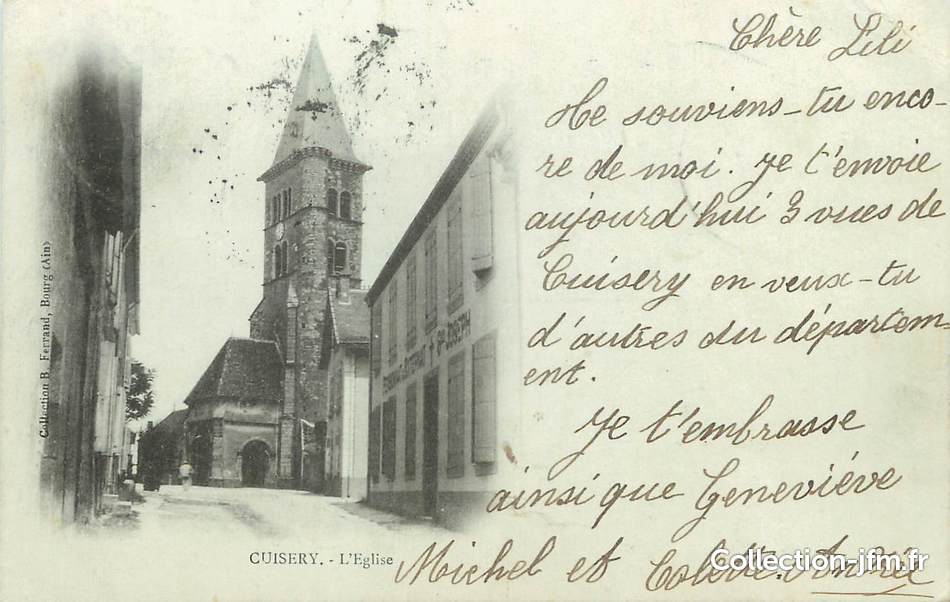 Chère Lili
Me souviens-tu enco-
re de moi. Je t'envoie
aujourd'hui 3 vues de
Cuisery en veux-tu
d'autres du départem-
ent.
Je t'embrasse
ainsi que Geneviéve
Michel et Colette. Andrée
Collection B. Ferrand, Bourg (Ain)
PENSIONNAT-EXTERNAT + St JOSEPH
CUISERY. - L'Eglise
Collection-jfm.fr